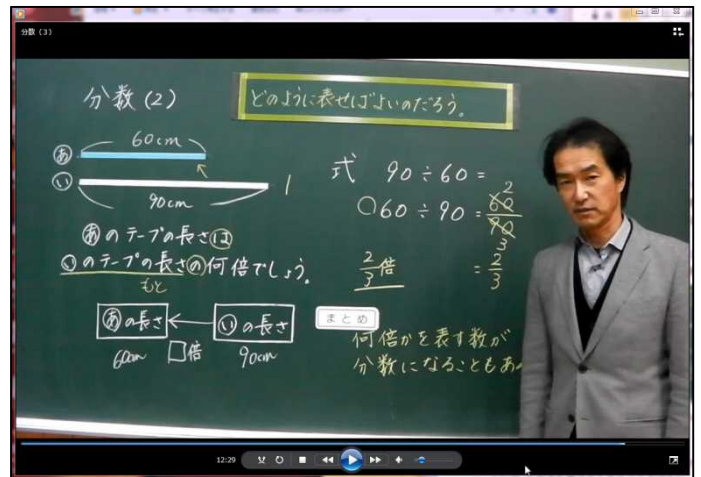 分数（3）
分数(2)
どのように表せばよいのだろう。
60cm
あ
い
90cm
あのテープの長さは
いのテープの長さの何倍でしょう。
もと
あの長さ ← いの長さ
60cm □倍 90cm
式 90÷60=
○60÷90= 60/90
2
3
2/3倍 = 2/3
まとめ
何倍かを表す数が
分数になることもあ
12:29